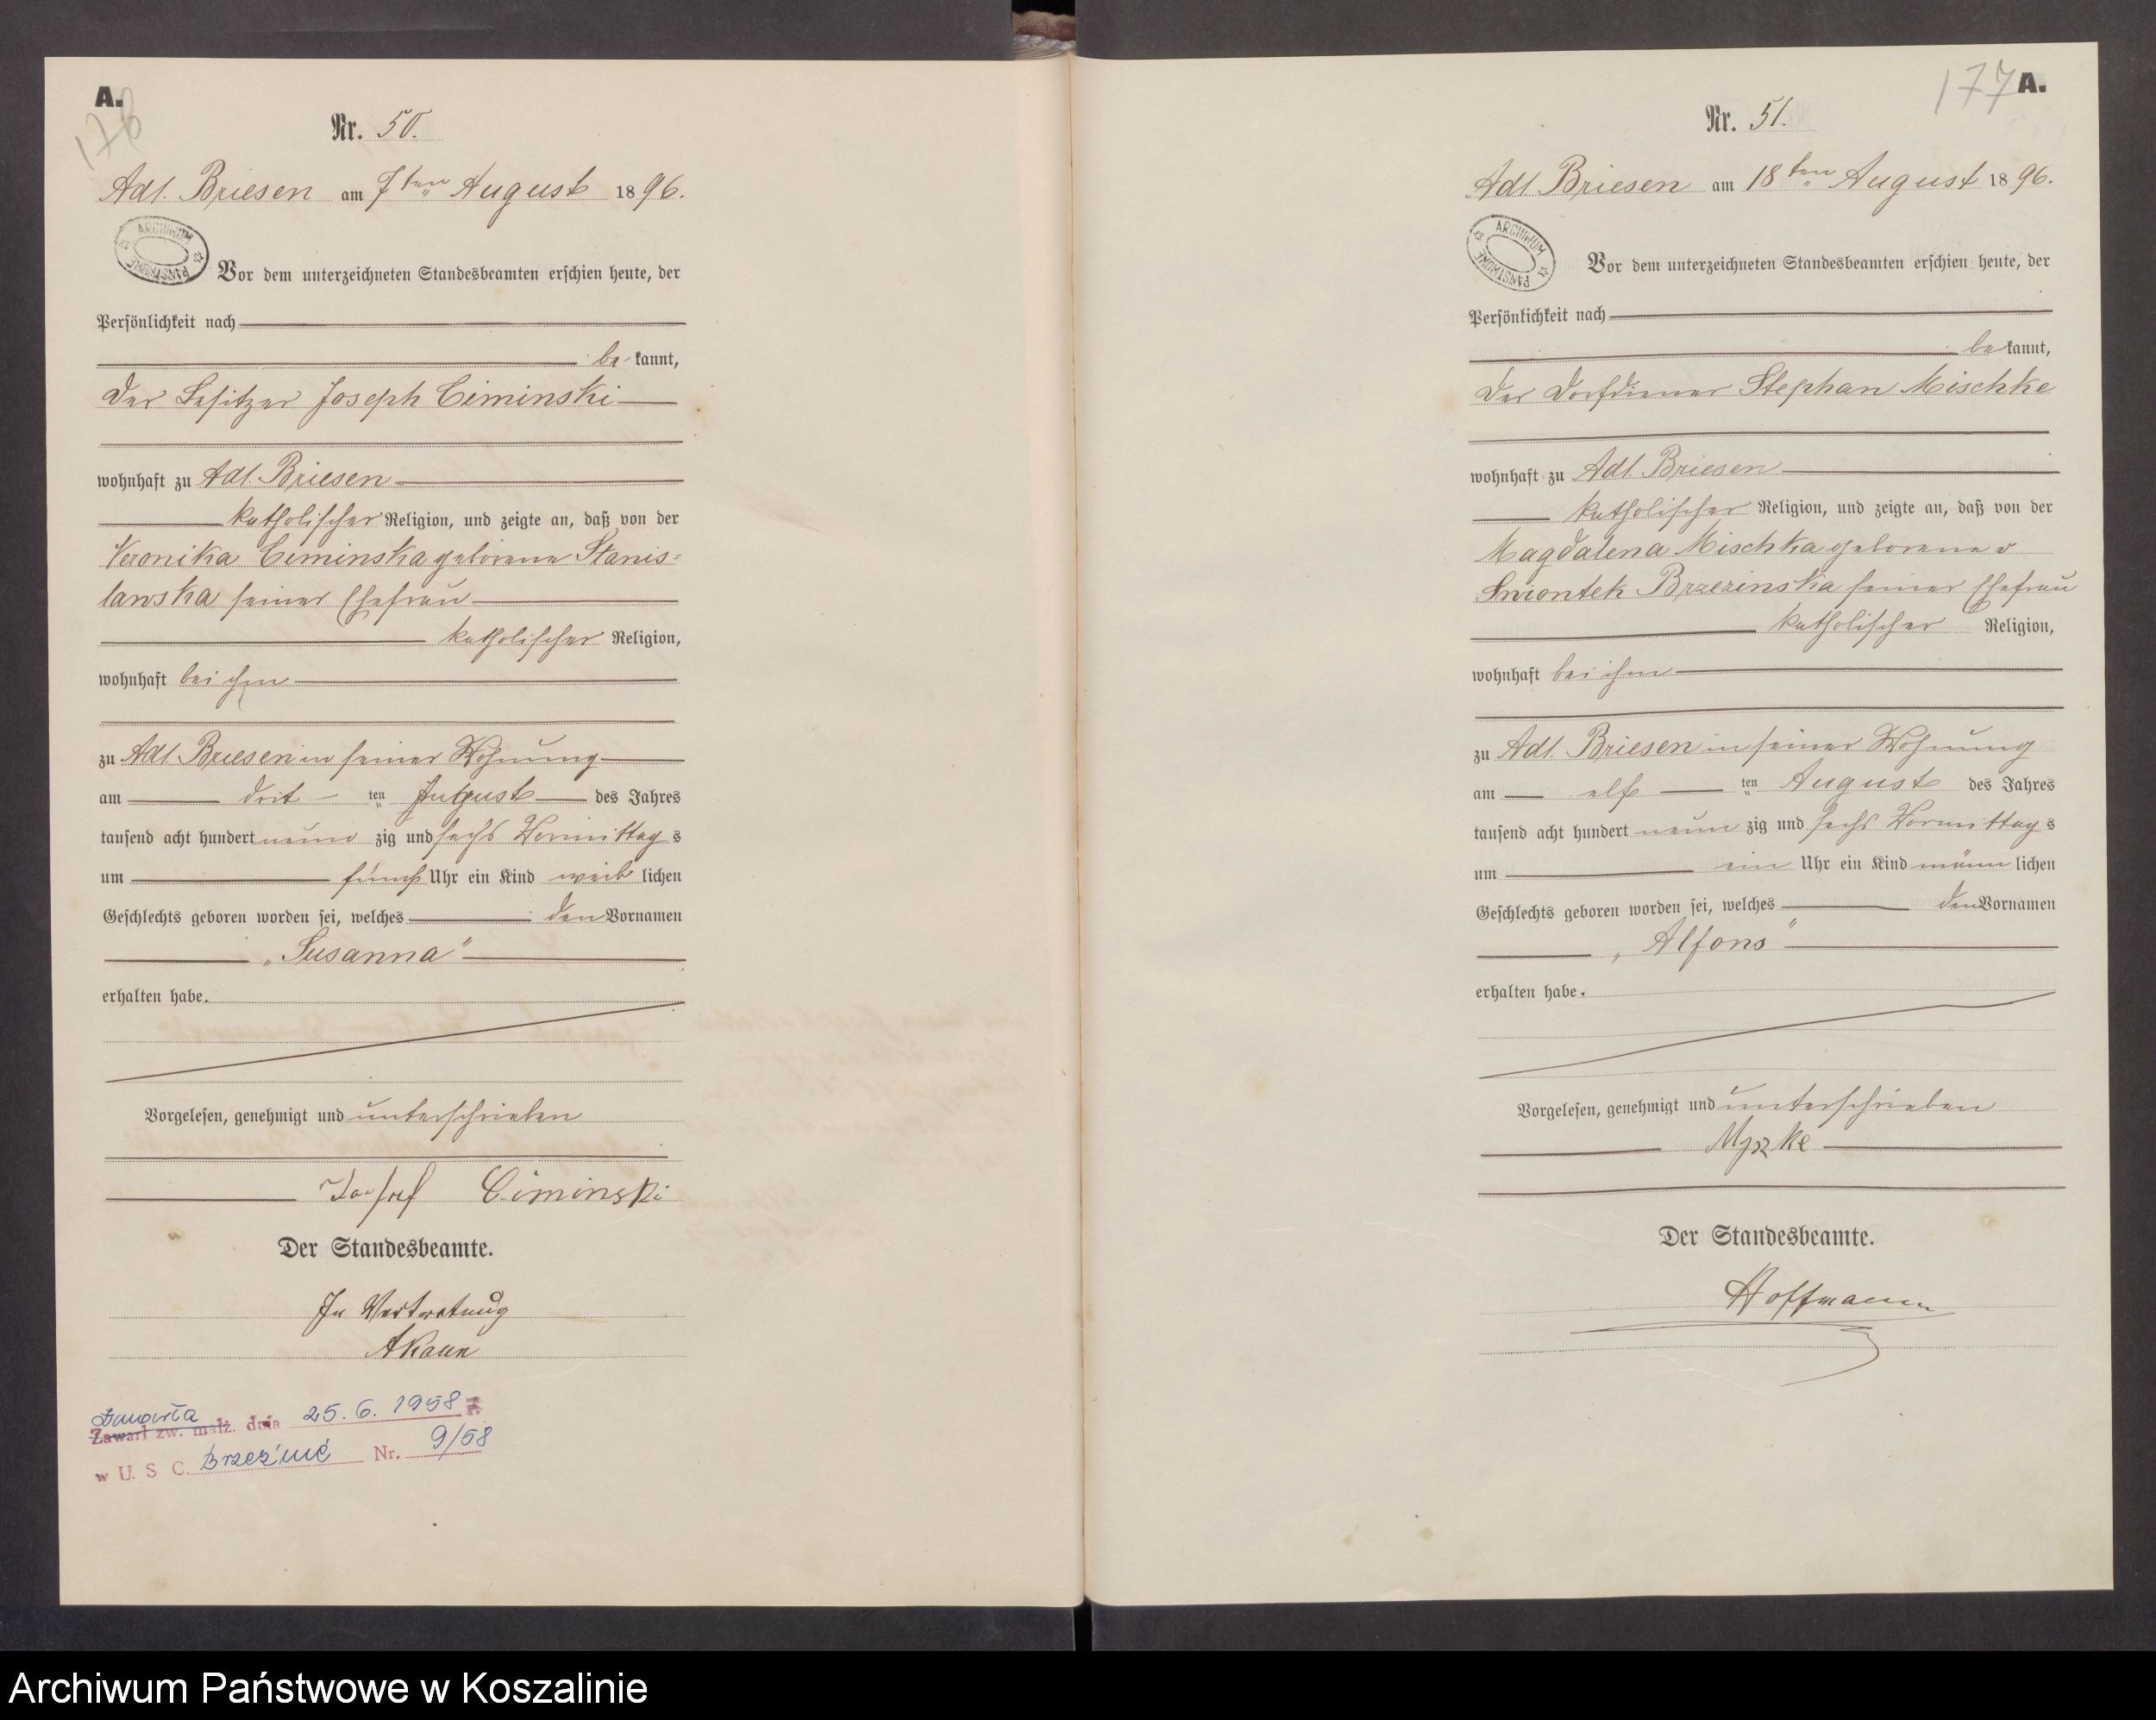 A.
176
Nr. 50.
Adl. Briesen am 7ten August 1896.
ARCHIWUM PAŃSTWOWE
Vor dem unterzeichneten Standesbeamten erschien heute, der
Persönlichkeit nach
bekannt,
der Besitzer Joseph Ciminski
wohnhaft zu Adl. Briesen
katholischer Religion, und zeigte an, daß von der
Veronika Ciminska geborene Stanis=
lawska seiner Ehefrau
katholischer Religion,
wohnhaft bei ihm
zu Adl. Briesen in seiner Wohnung
am drit ten August des Jahres
tausend acht hundert neun zig und sechs Vormittags
um fünf Uhr ein Kind weiblichen
Geschlechts geboren worden sei, welches den Vornamen
„Susanna"
erhalten habe.
Vorgelesen, genehmigt und unterschrieben
Josef Ciminski
Der Standesbeamte.
In Vertretung
Zmarła
Zawarł zw. małż. dnia 25.6.1958 r.
w U. S. C. Brzeźnie Nr. 9/58
177 A.
Nr. 51.
Adl. Briesen am 18ten August 1896.
ARCHIWUM PAŃSTWOWE
Vor dem unterzeichneten Standesbeamten erschien heute, der
Persönlichkeit nach
bekannt,
der Dorfdiener Stephan Mischke
wohnhaft zu Adl. Briesen
katholischer Religion, und zeigte an, daß von der
Magdalena Mischka geborene v
Swiontek Brzezinska seiner Ehefrau
katholischer Religion,
wohnhaft bei ihm
zu Adl. Briesen in seiner Wohnung
am elf ten August des Jahres
tausend acht hundert neun zig und sechs Vormittags
um ein Uhr ein Kind männlichen
Geschlechts geboren worden sei, welches den Vornamen
„Alfons"
erhalten habe.
Vorgelesen, genehmigt und unterschrieben
Myszke
Der Standesbeamte.
Hoffmann
Archiwum Państwowe w Koszalinie